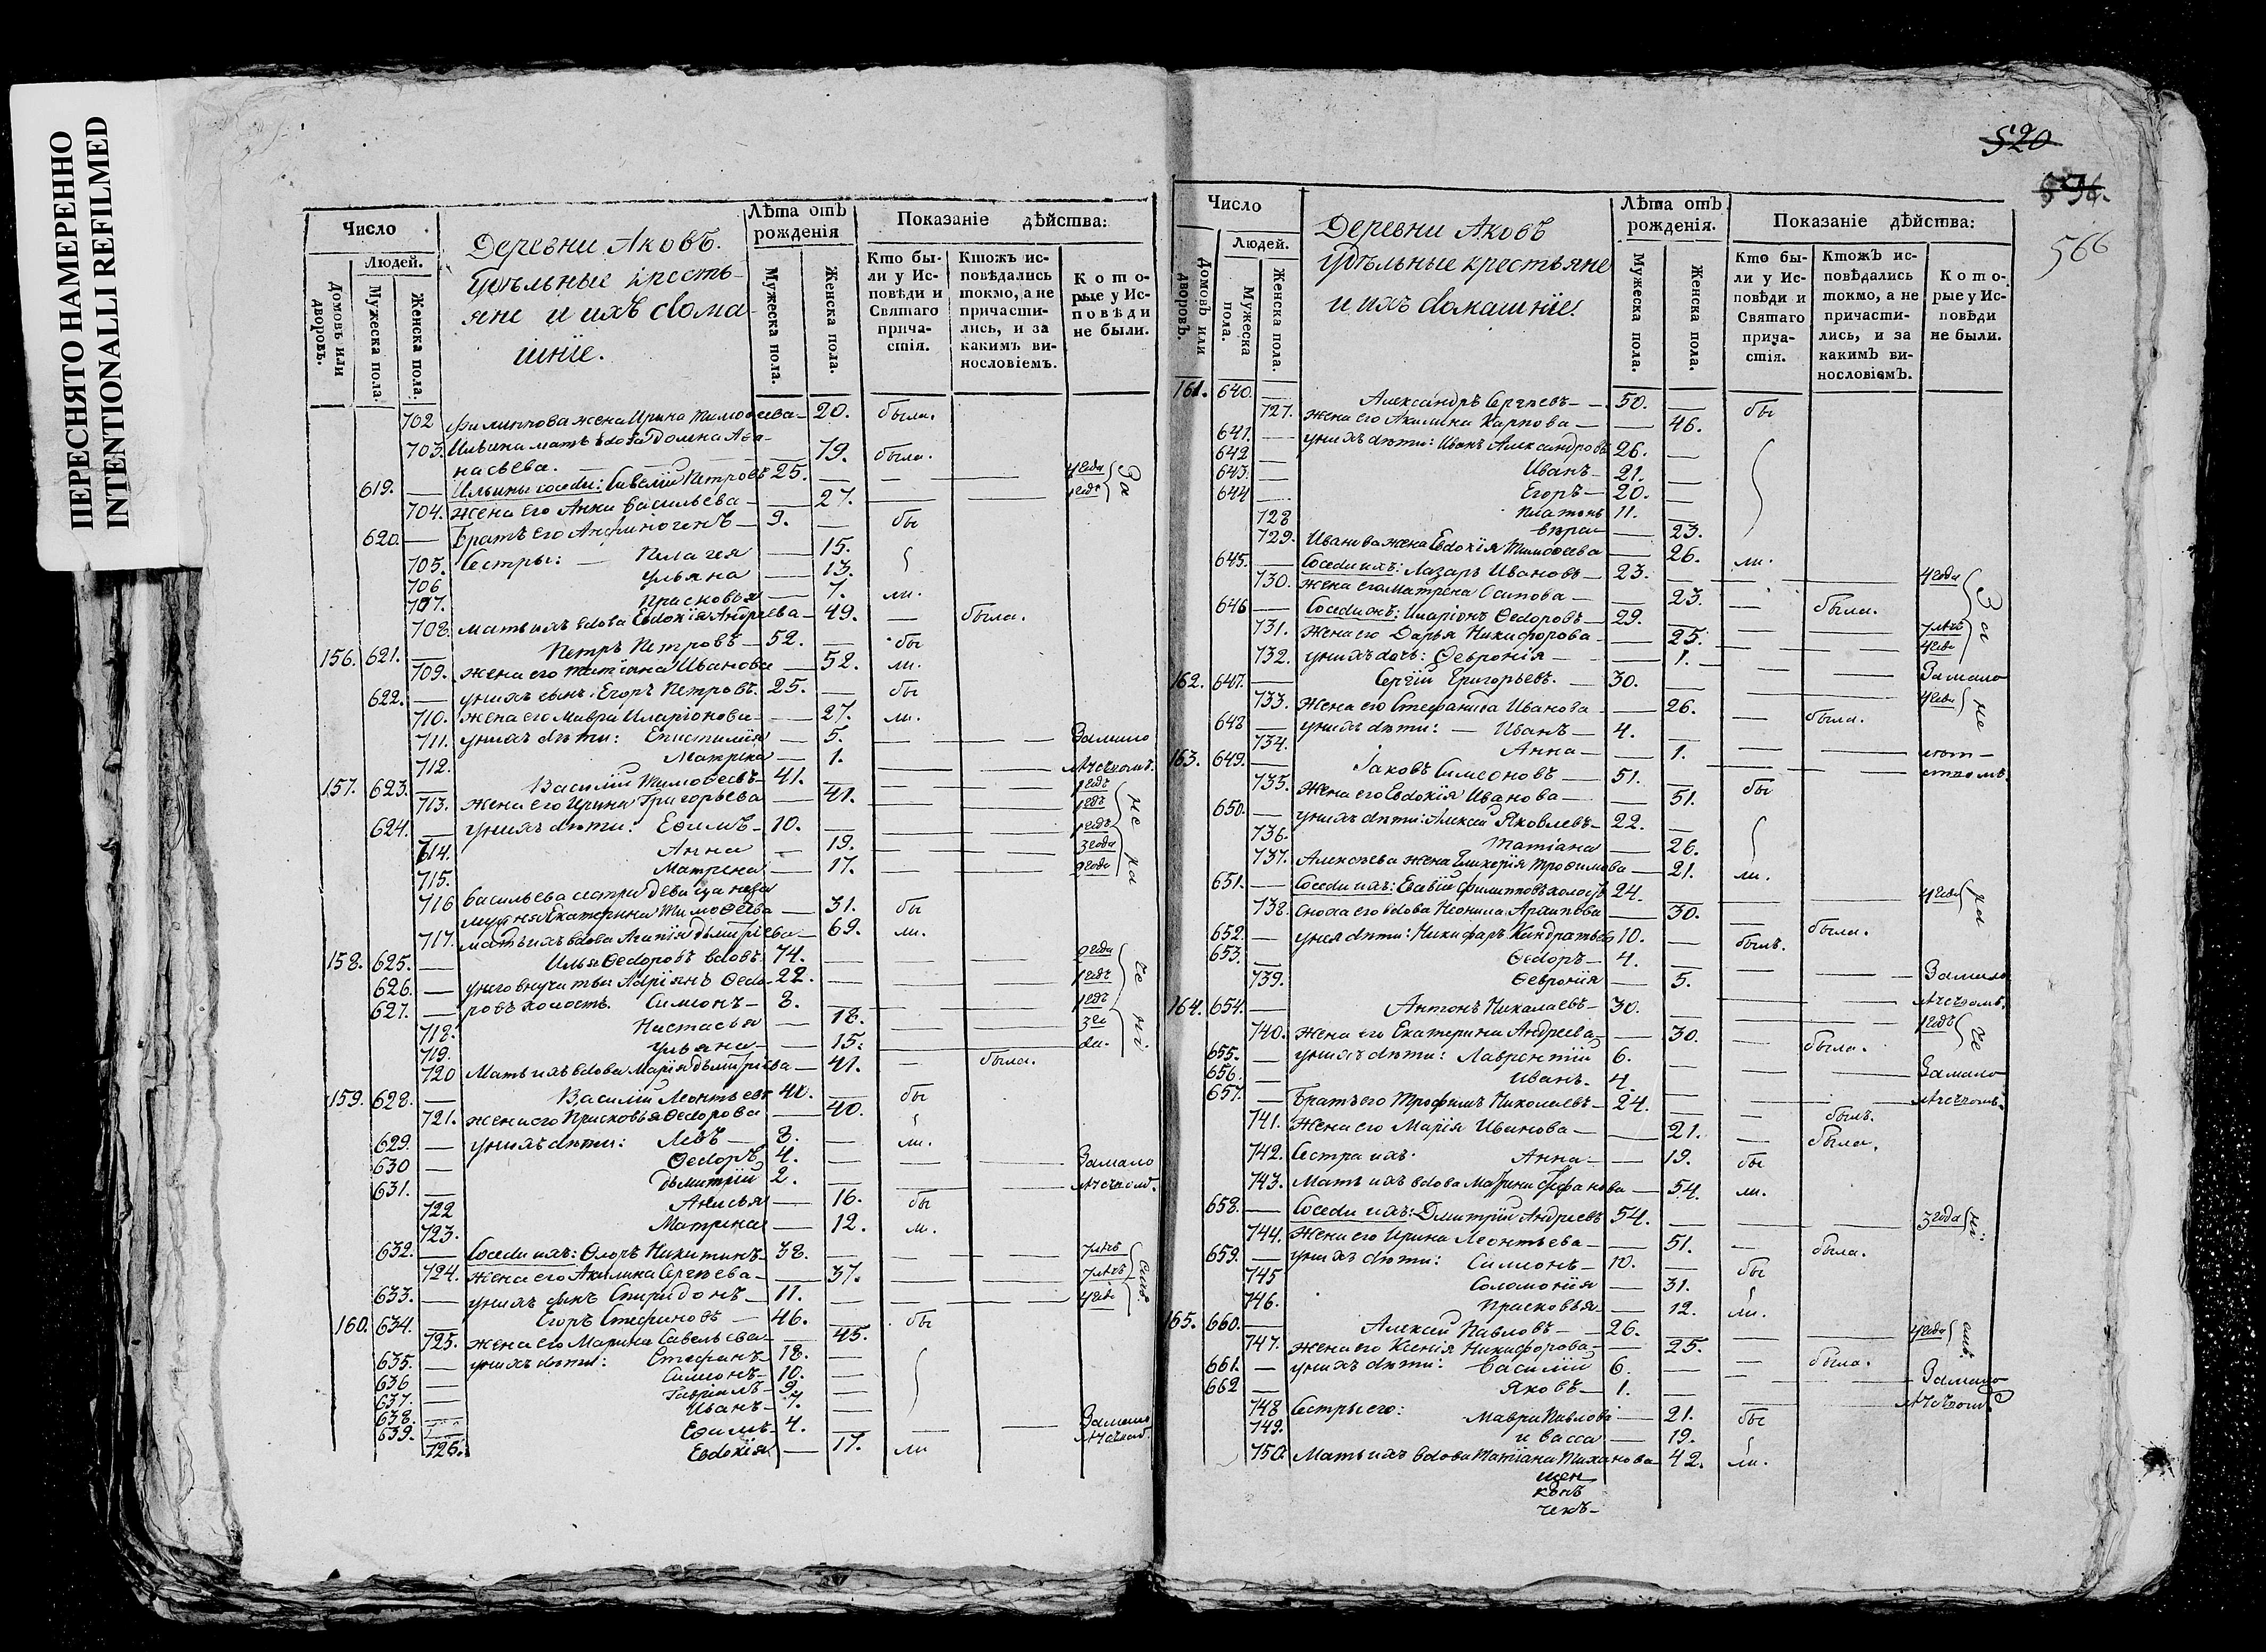 ПЕРЕСНЯТО НАМЕРЕННО
INTENTIONALLI REFILMED
520
566
Число
Людей.
Домовъ или дворовъ.
Мужеска пола.
Женска пола.
Деревни Аковъ.
Удѣльные кресть-
яне и ихъ дома-
шніе.
Лѣта отъ рожденія
Мужеска пола.
Женска пола.
Показаніе дѣйства:
Кто бы-
ли у Ис-
повѣди и
Святаго
прича-
стія.
Ктожъ ис-
повѣдались
токмо, а не
причасти-
лись, и за
какимъ ви-
нословіемъ.
Кото-
рые у Ис-
повѣди
не были.
702 Филиппова жена Ирина Тимофеева 20. была.
703. Ильина мать вдова Домна Афа-
насьева. 79. была.
619. Ильины соседи: Савелій Петровъ 25. 4 года За
704. Жена его Анна Васильева 27. 1 годъ
620. Братъ его Анфиногенъ 9. бы
705. Сестры: Пелагея 15.
706 Ульяна 13.
707. Прасковья 7. ли.
708. мать ихъ вдова Евдокія Андреева 49. была.
156. 621. Петръ Петровъ 52. бы
709. жена его Татіана Иванова 52. ли.
622. у нихъ сынъ: Егоръ Петровъ 25. бы
710. жена его Мавра Иларіонова 27. ли.
711. у нихъ дѣти: Епистимія 5. За мало
712. Матрена 1. лѣтствомъ.
157. 623. Василій Тимофеевъ 41. 1 годъ не
713. жена его Ирина Григорьева 41. 1 годъ
624. у нихъ дѣти: Ефимъ 10. 1 годъ
714. Анна 19. 3 года ра
715. Матрена 17. 2 года
716 Васильева сестра девица неза
мужняя Екатерина Тимофеева 31. бы
717. мать ихъ вдова Агапія Дмитріева 69. ли.
158. 625. Илья Федоровъ вдовъ 74. 2 года
626. у него внучаты: Адріянъ Федо- 22. 1 годъ
627. ровъ холостъ. Симеонъ 8. 1 годъ
718. Настасья 18. 3 го
719. Ульяна 15. да.
720 Мать ихъ вдова Марія Дмитріева 41. была.
159. 628. Василій Леонтьевъ 40. бы
721. жена его Прасковья Федорова 40.
629. у нихъ дѣти: Левъ 8. ли.
630 Федоръ 4. За мало
631. Дмитрій 2. лѣтствомъ.
722 Анисья 16. бы
723. Матрена 12. ли.
632. Соседи ихъ: Флоръ Никитинъ 38. 7 лѣтъ
724. жена его Акилина Сергеева 37. 7 лѣтъ
633. у нихъ сынъ Спиридонъ 11. 4 года
160. 634. Егоръ Стефановъ 46. бы
725. жена его Марина Савельева 45.
635. у нихъ дѣти: Стефанъ 18.
636 Симеонъ 10.
637. Гавріилъ 9.
638. Иванъ 7.
639. Ефимъ 4. За мало
726. Евдокія 17. ли лѣтствомъ.
Число
Людей.
Домовъ или дворовъ.
Мужеска пола.
Женска пола.
Деревни Аковъ
Удѣльные крестьяне
и ихъ домашніе.
Лѣта отъ рожденія.
Мужеска пола.
Женска пола.
Показаніе дѣйства:
Кто бы-
ли у Ис-
повѣди и
Святаго
прича-
стія.
Ктожъ ис-
повѣдались
токмо, а не
причасти-
лись, и за
какимъ ви-
нословіемъ.
Кото-
рые у Ис-
повѣди
не были.
161. 640. Александръ Сергеевъ 50. бы
727. жена его Акилина Карпова 46.
641. у нихъ дѣти: Иванъ Александровъ 26.
642 Иванъ 21.
643. Егоръ 20.
644 Платонъ 11.
728 Вѣра 23.
729. Иванова жена Евдокія Тимофеева 26. ли.
645. Соседи ихъ: Лазарь Ивановъ 23. 4 года За
730. жена его Матрена Осипова 23. была.
646 Соседи ихъ: Иларіонъ Федоровъ 29. 7 лѣтъ
731. жена его Дарья Никифорова 25. 4 года
732. у нихъ дочь: Февронія 1. За мало
162. 647. Сергій Григорьевъ. 30. 4 года не
733. жена его Стефанида Иванова 26. была.
648 у нихъ дѣти: Иванъ 4. лѣт-
734. Анна 1. ствомъ.
163. 649. Іаковъ Симеоновъ 51. бы
735. жена его Евдокія Иванова 51.
650. у нихъ дѣти: Алексій Яковлевъ 22.
736. Татіана 26.
737. Алексеева жена Гликерія Трофимова 21. ли.
651. Соседи ихъ: Евсевій Филипповъ холостъ 24. 4 года ра
738. сноха его вдова Неонила Архипова 30. была.
652. у нея дѣти: Никифоръ Кондратьевъ 10. былъ.
653. Федоръ 4. За мало
739. Февронія 5. лѣтствомъ.
164. 654. Антонъ Николаевъ 30. 1 годъ
740. жена его Екатерина Андреева 30. была.
655. у нихъ дѣти: Лаврентій 6. За мало
656. Иванъ. 4. лѣтствомъ.
657. Братъ его Трофимъ Николаевъ 24. былъ.
741. жена его Марія Иванова 21. была.
742. Сестра ихъ: Анна 19. бы
743. Мать ихъ вдова Марина Стефанова 54. ли.
658. Соседи ихъ: Дмитрій Андреевъ 54. 3 года ні
744. жена его Ирина Леонтьева 51. была.
659. у нихъ дѣти: Симеонъ 10. бы
745 Соломонія 31.
746. Прасковья 12. ли.
165. 660. Алексій Павловъ 26. 4 года
747. жена его Ксенія Никифорова 25. была.
661. у нихъ дѣти: Василій 6. За мало
662 Яковъ 1. лѣтствомъ
748 Сестры его: Мавра Павлова 21. бы
749. и Васса 19.
750. Мать ихъ вдова Татіана Тиханова 42. ли.